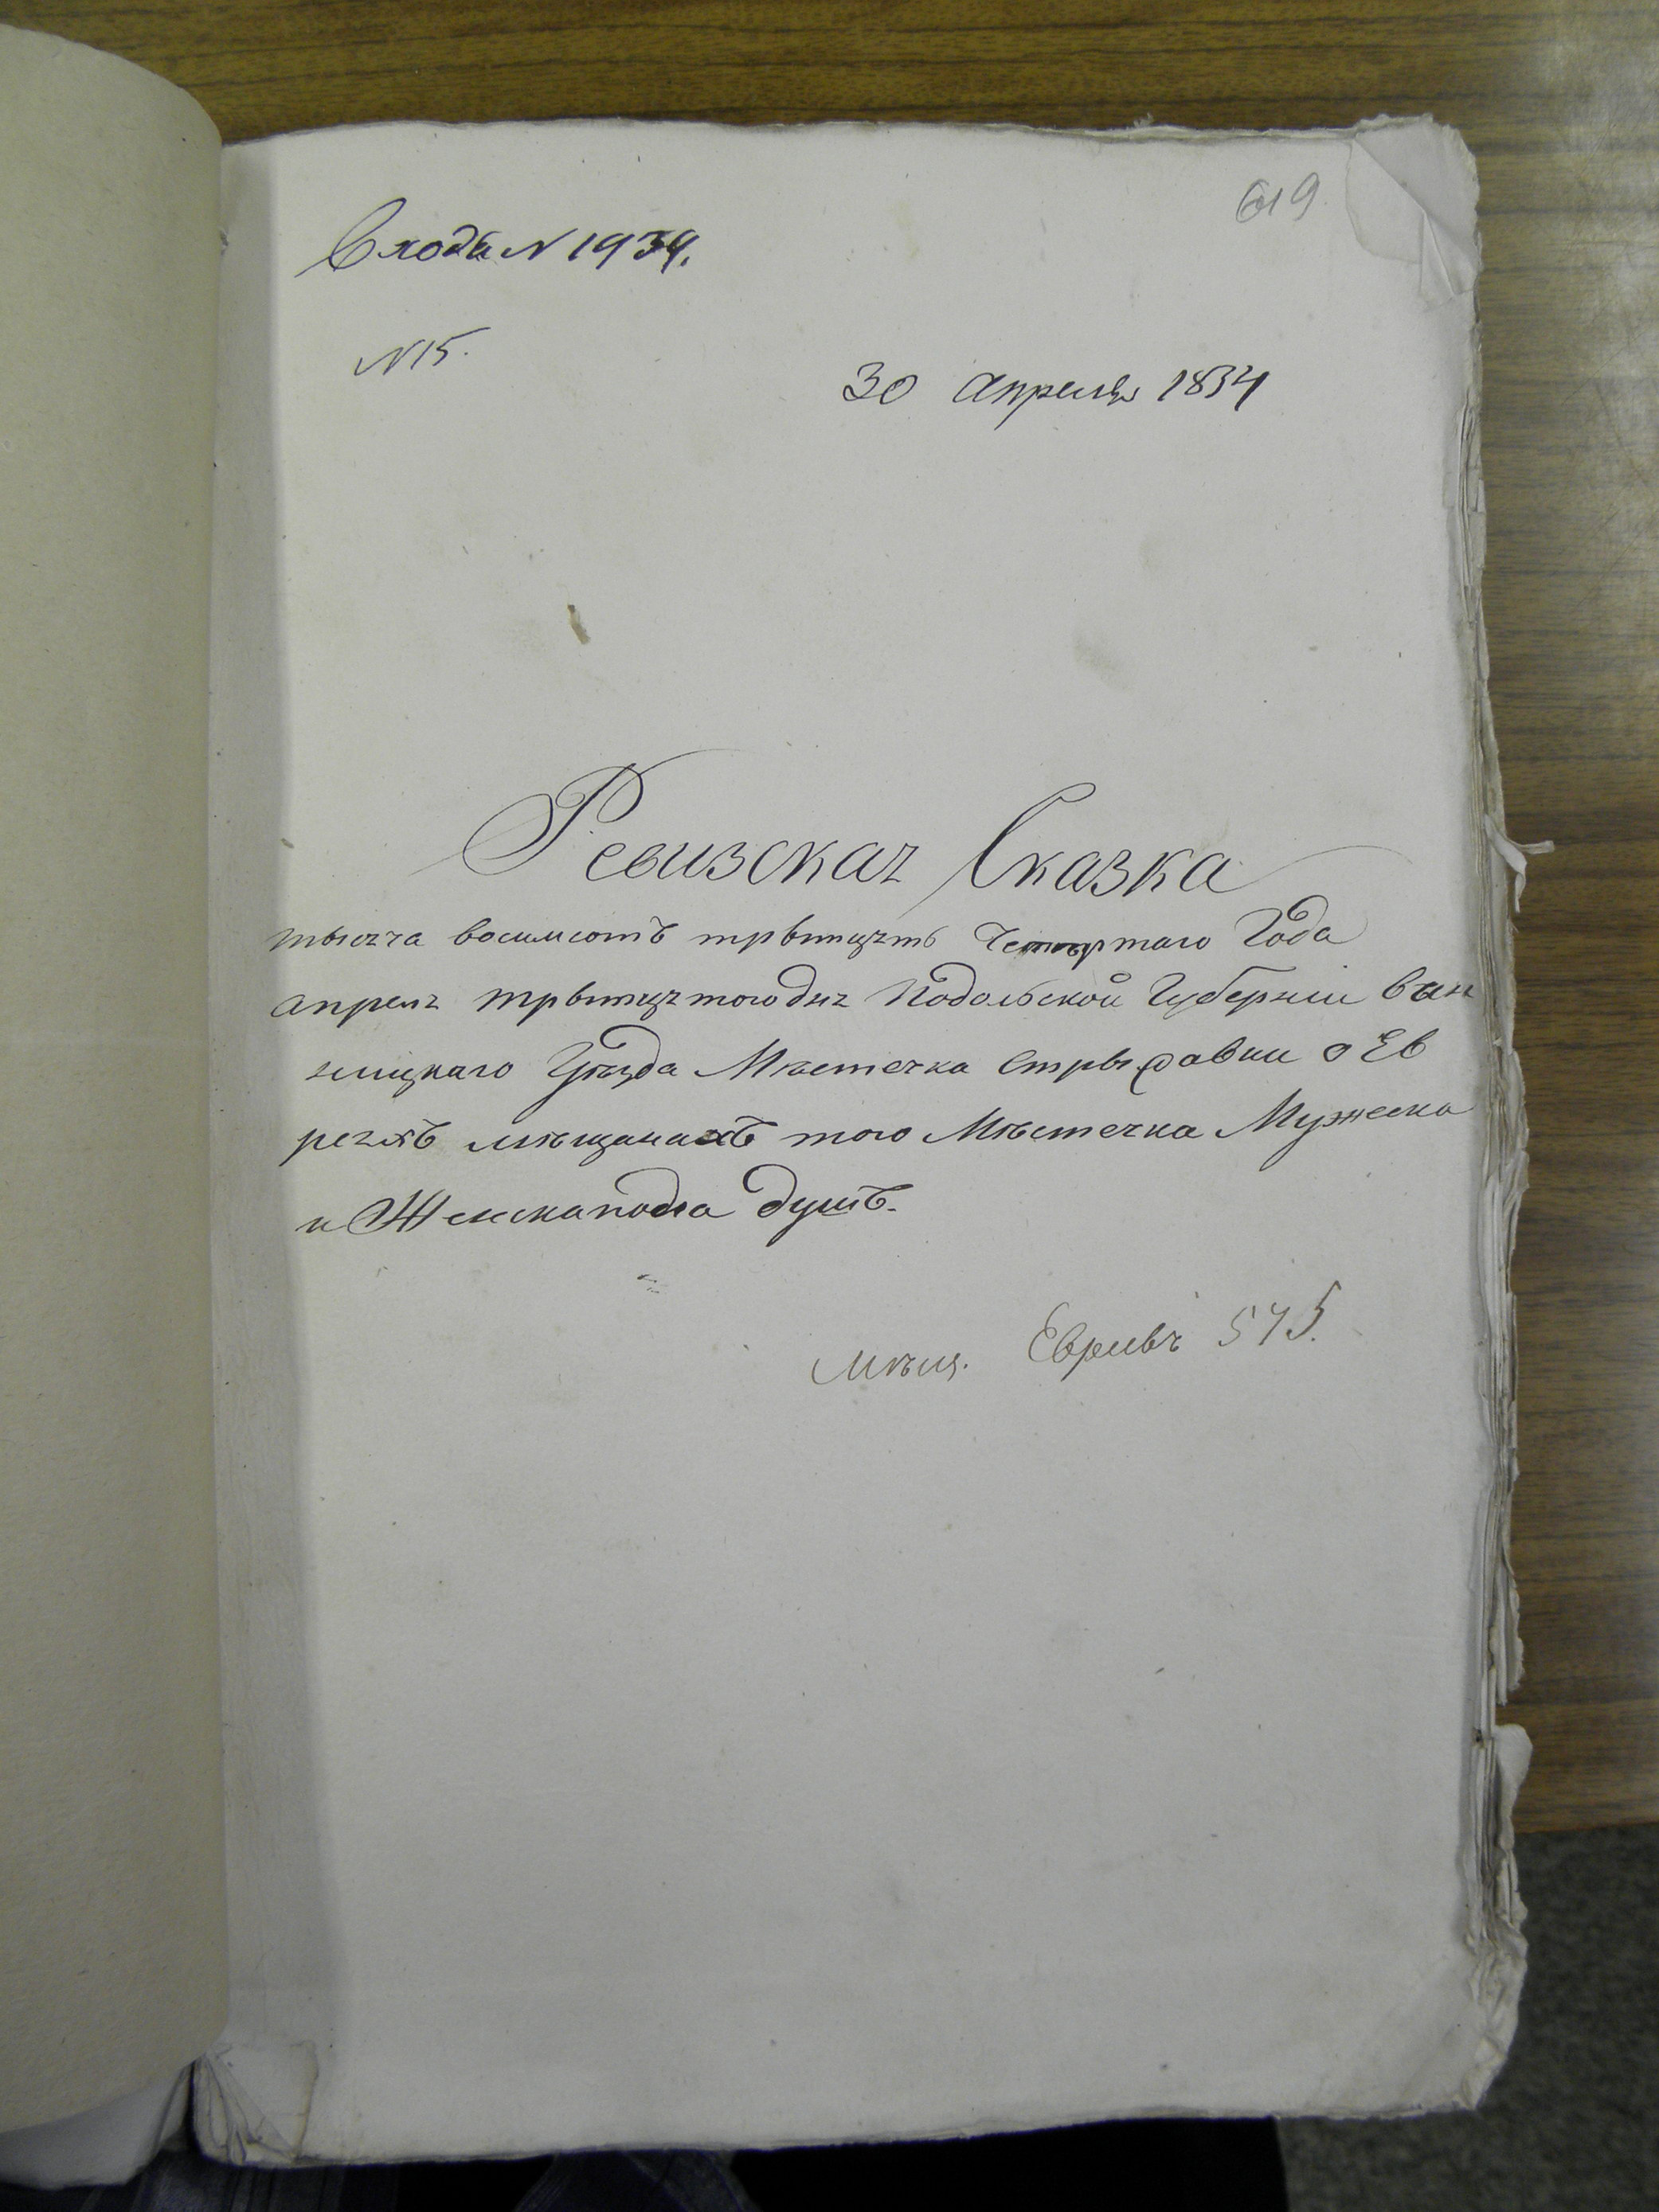 619
Входя N 1939.
N 15.
30 Апреля 1834
Ревизская Сказка
тысяча восимсотъ трытцять Четвертаго Года
апреля трытцятого дня Подольской Губерніи Вын
ницкаго Уѣзда Мѣстечка Стрыжавки о Ев
реяхъ мѣщанахъ того Мѣстечка Мужеска
и Женска пола душъ.
Мѣщ. Евреевъ 575.